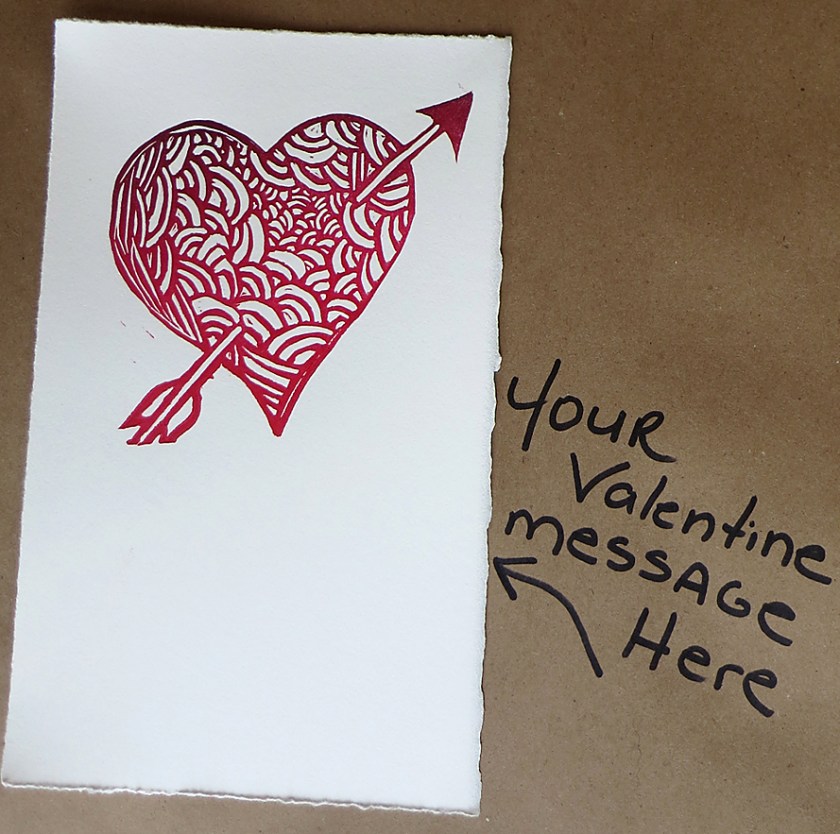 YOUR
Valentine
messAGe
Here